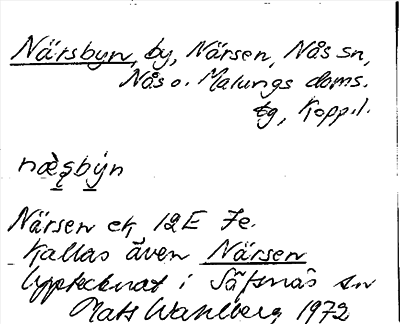 Närsbyn, by, Närsen, Nås sn,
Nås o. Malungs doms.
tg, Kopp.l.
næ̀ʂbýn
Närsen ek 12E 7e.
Kallas även Närsen
Upptecknat i Säfsnäs sn
Mats Wahlberg 1972